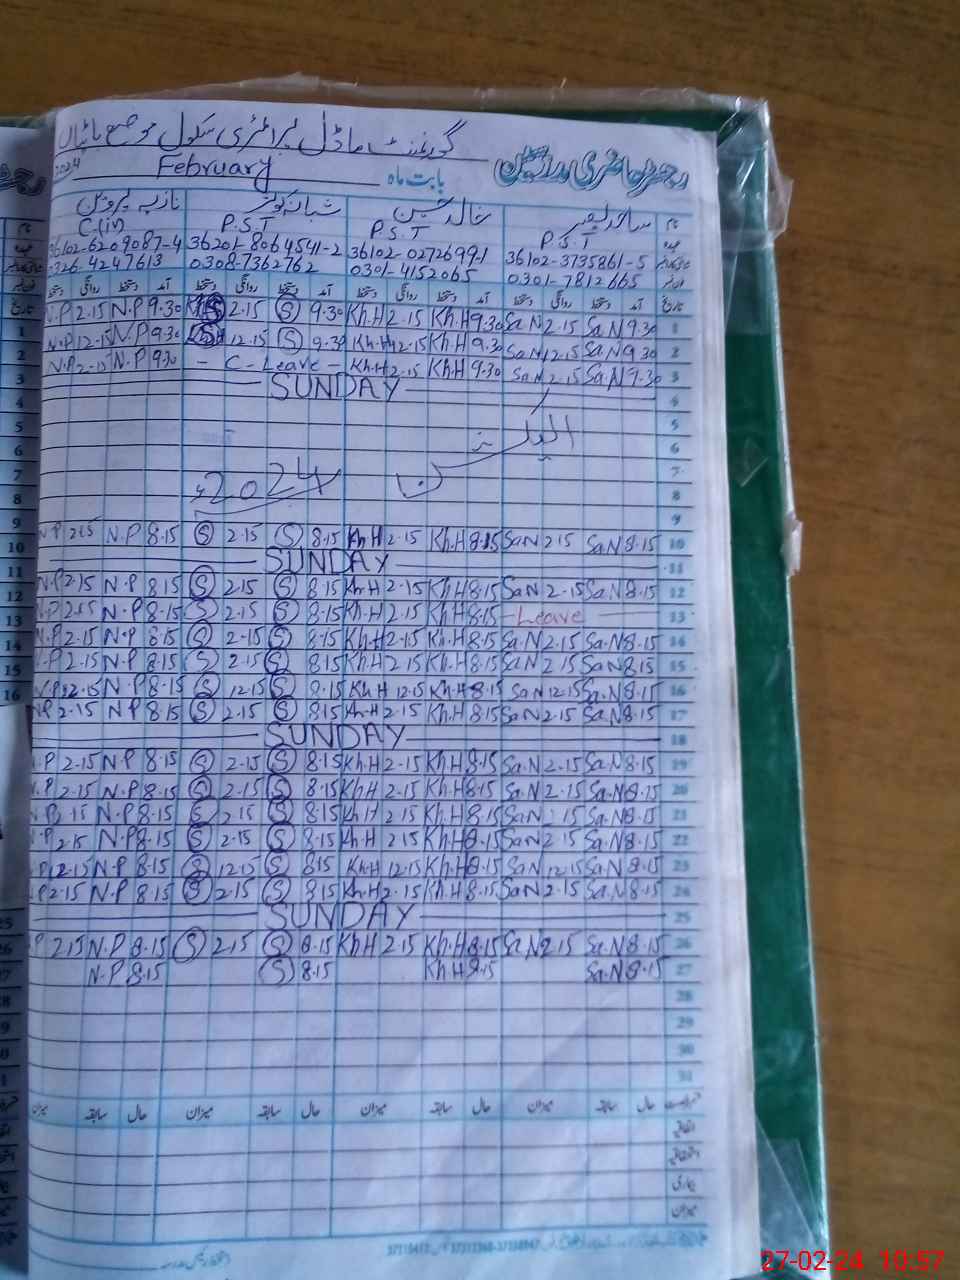 گورنمنٹ ماڈل پرائمری سکول موضع
رجسٹر حاضری مدرسین بابت ماہ February 2024
نام ساجد خالد حسین شبانہ کوثر نازیہ پروین
عہدہ P.S.T P.S.T P.S.T C.(iv)
36102-3735861-5 36102-0272699-1 36201-8064541-2 36102-6209087-4
0301-7812665 0301-4152065 0308-7362762 0326-4247613
تاریخ آمد دستخط روانگی دستخط آمد دستخط روانگی دستخط آمد دستخط روانگی دستخط آمد دستخط روانگی دستخط
1 9.30 Sa.N 2.15 Sa.N 9.30 Kh.H 2.15 Kh.H 9.30 S 2.15 S 9.30 N.P 2.15 N.P
2 9.30 Sa.N 12.15 Sa.N 9.30 Kh.H 12.15 Kh.H 9.30 S 12.15 S 9.30 N.P 12.15 N.P
3 9.30 Sa.N 2.15 Sa.N 9.30 Kh.H 2.15 Kh.H - C-Leave - 9.30 N.P 2.15 N.P
4 SUNDAY
5
6 الیکشن
7
8 2024ء
9
10 8.15 Sa.N 2.15 Sa.N 8.15 Kh.H 2.15 Kh.H 8.15 S 2.15 S 8.15 N.P 2.15 N.P
11 SUNDAY
12 8.15 Sa.N 2.15 Sa.N 8.15 Kh.H 2.15 Kh.H 8.15 S 2.15 S 8.15 N.P 2.15 N.P
13 Leave 8.15 Kh.H 2.15 Kh.H 8.15 S 2.15 S 8.15 N.P 2.15 N.P
14 8.15 Sa.N 2.15 Sa.N 8.15 Kh.H 2.15 Kh.H 8.15 S 2.15 S 8.15 N.P 2.15 N.P
15 8.15 Sa.N 2.15 Sa.N 8.15 Kh.H 2.15 Kh.H 8.15 S 2.15 S 8.15 N.P 2.15 N.P
16 8.15 Sa.N 12.15 Sa.N 8.15 Kh.H 12.15 Kh.H 8.15 S 12.15 S 8.15 N.P 12.15 N.P
17 8.15 Sa.N 2.15 Sa.N 8.15 Kh.H 2.15 Kh.H 8.15 S 2.15 S 8.15 N.P 2.15 N.P
18 SUNDAY
19 8.15 Sa.N 2.15 Sa.N 8.15 Kh.H 2.15 Kh.H 8.15 S 2.15 S 8.15 N.P 2.15 N.P
20 8.15 Sa.N 2.15 Sa.N 8.15 Kh.H 2.15 Kh.H 8.15 S 2.15 S 8.15 N.P 2.15 N.P
21 8.15 Sa.N 2.15 Sa.N 8.15 Kh.H 2.15 Kh.H 8.15 S 2.15 S 8.15 N.P 2.15 N.P
22 8.15 Sa.N 2.15 Sa.N 8.15 Kh.H 2.15 Kh.H 8.15 S 2.15 S 8.15 N.P 2.15 N.P
23 8.15 Sa.N 12.15 Sa.N 8.15 Kh.H 12.15 Kh.H 8.15 S 12.15 S 8.15 N.P 12.15 N.P
24 8.15 Sa.N 2.15 Sa.N 8.15 Kh.H 2.15 Kh.H 8.15 S 2.15 S 8.15 N.P 2.15 N.P
25 SUNDAY
26 8.15 Sa.N 2.15 Sa.N 8.15 Kh.H 2.15 Kh.H 8.15 S 2.15 S 8.15 N.P 2.15 N.P
27 8.15 Sa.N 8.15 Kh.H 8.15 S 8.15 N.P
28
29
30
31
حال سابقہ میزان حال سابقہ میزان حال سابقہ میزان حال سابقہ میزان
اتفاقیہ
استحقاقیہ
بیماری
میزان
27-02-24 10:57